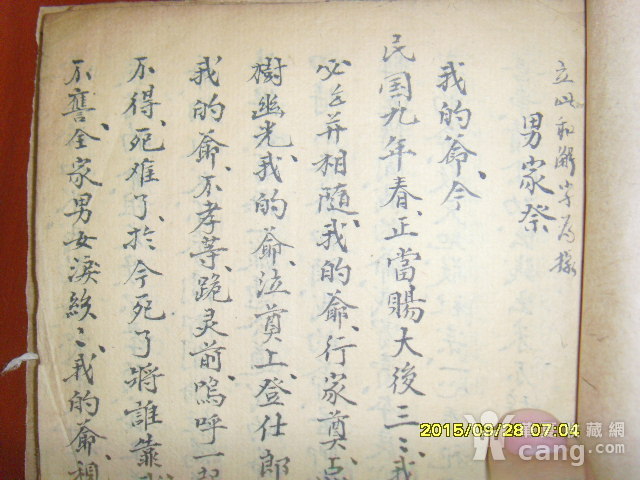 立此和
字為據
男家祭
我的爺、今
民国九年春、正當賜大後三〻我
必乞并相隨、我的爺、行家奠
樹幽光、我的爺、泣奠上、登仕郎
我的爺、不孝等、跪灵前嗚呼一
不得、死难了、於今死了將誰靠
不
全家男女淚
〻、我的爺、
2015/09/28 07:04
藏網
cang.com